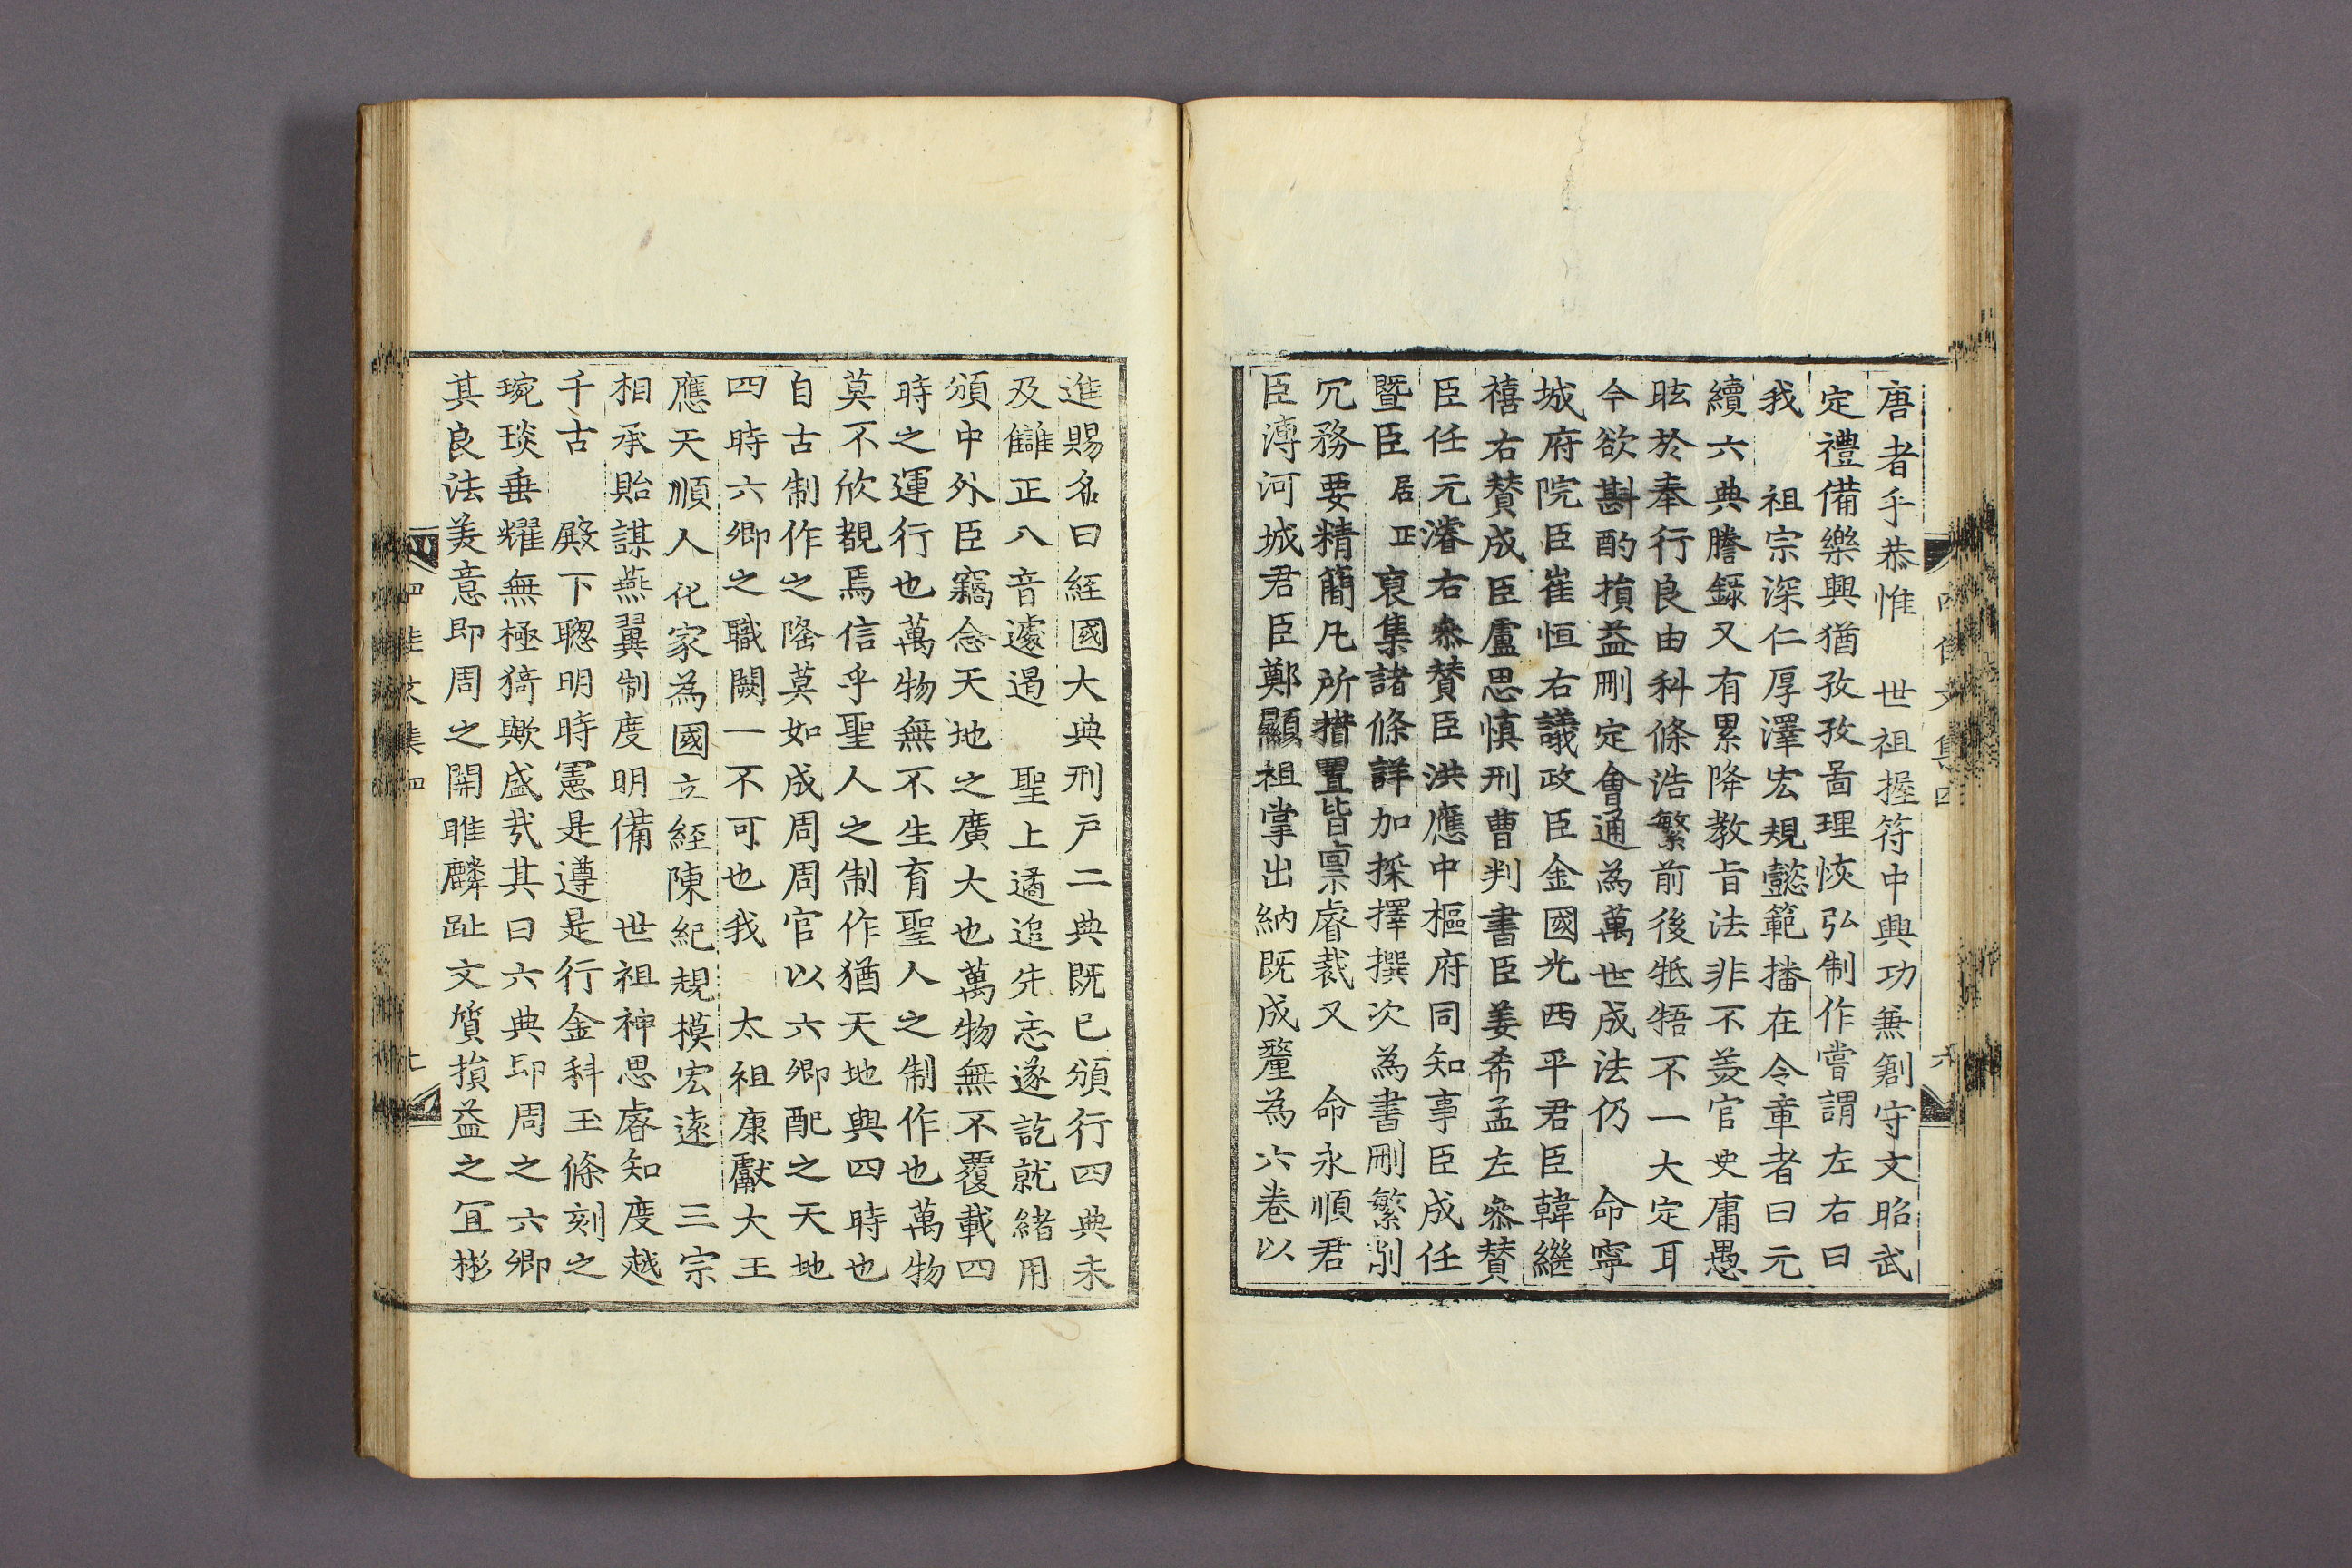 唐者乎恭惟 世祖握符中興功兼創守文昭武
定禮備樂興猶孜孜啚理恢弘制作嘗謂左右曰
我 祖宗深仁厚澤宏規懿範播在令章者曰元
續六典謄錄又有累降教旨法非不美官吏庸愚
眩於奉行良由科條浩繁前後牴牾不一大定耳
今欲斟酌損益刪定會通為萬世成法仍 命寧
城府院臣崔恒右議政臣金國光西平君臣韓繼
禧右賛成臣盧思慎刑曹判書臣姜希孟左叅賛
臣任元濬右叅賛臣洪應中樞府同知事臣成任
曁臣居正裒集諸條詳加採擇撰次為書刪繁削
冗務要精簡凡所措置皆禀睿裁又 命永順君
臣溥河城君臣鄭顯祖掌出納既成釐為六卷以
進賜名曰經國大典刑戶二典既已頒行四典未
及讎正八音遽遏 聖上遹追先志遂訖就緒用
頒中外臣竊念天地之廣大也萬物無不覆載四
時之運行也萬物無不生育聖人之制作也萬物
莫不欣覩焉信乎聖人之制作猶天地與四時也
自古制作之隆莫如成周周官以六卿配之天地
四時六卿之職闕一不可也我 太祖康獻大王
應天順人化家為國立經陳紀規模宏遠 三宗
相承貽謀燕翼制度明備 世祖神思睿知度越
千古 殿下聦明時憲是遵是行金科玉條刻之
琬琰垂耀無極猗歟盛㢤其曰六典卽周之六卿
其良法美意即周之関睢麟趾文質損益之宜彬
四佳文集四